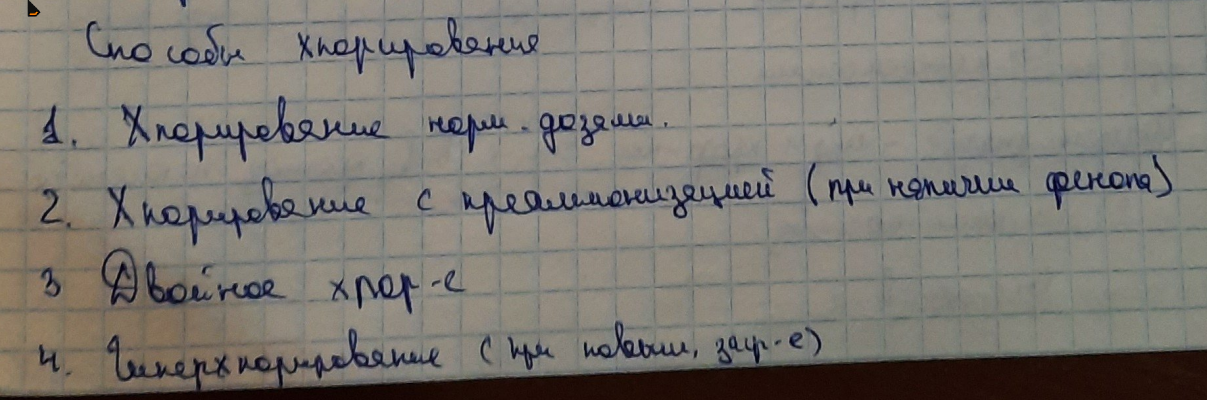 Способы хлорирование
1. Хлорирование норм. дозами.
2. Хлорирование с преаммонизацией (при наличии фенола)
3 Двойное хлор-е
4. Гиперхлорирование (при повыш. загр-е)